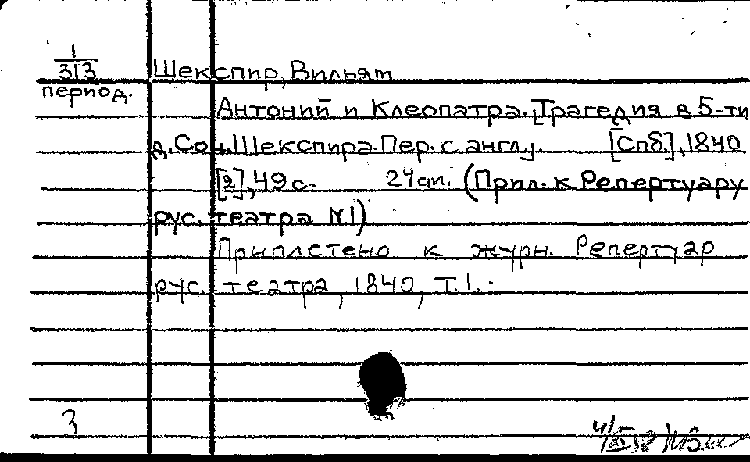 1
313
период.
Шекспир, Вильям
Антоний и Клеопатра. [Трагедия в 5-ти
д. Соч. Шекспира. Пер. с англ.]. [Спб.], 1840
[2], 49 с. 24 см. (Прил. к Репертуару
рус. театра №1)
Приплетено к журн. Репертуар
рус. театра, 1840, т. 1.-
3